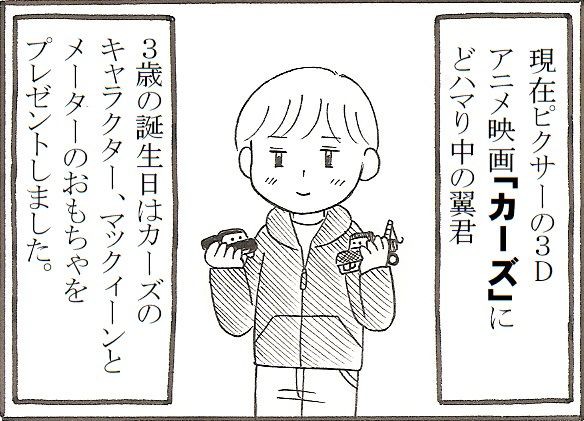 現在ピクサーの3D
アニメ映画「カーズ」に
どハマり中の翼君
3歳の誕生日はカーズの
キャラクター、マックィーンと
メーターのおもちゃを
プレゼントしました。